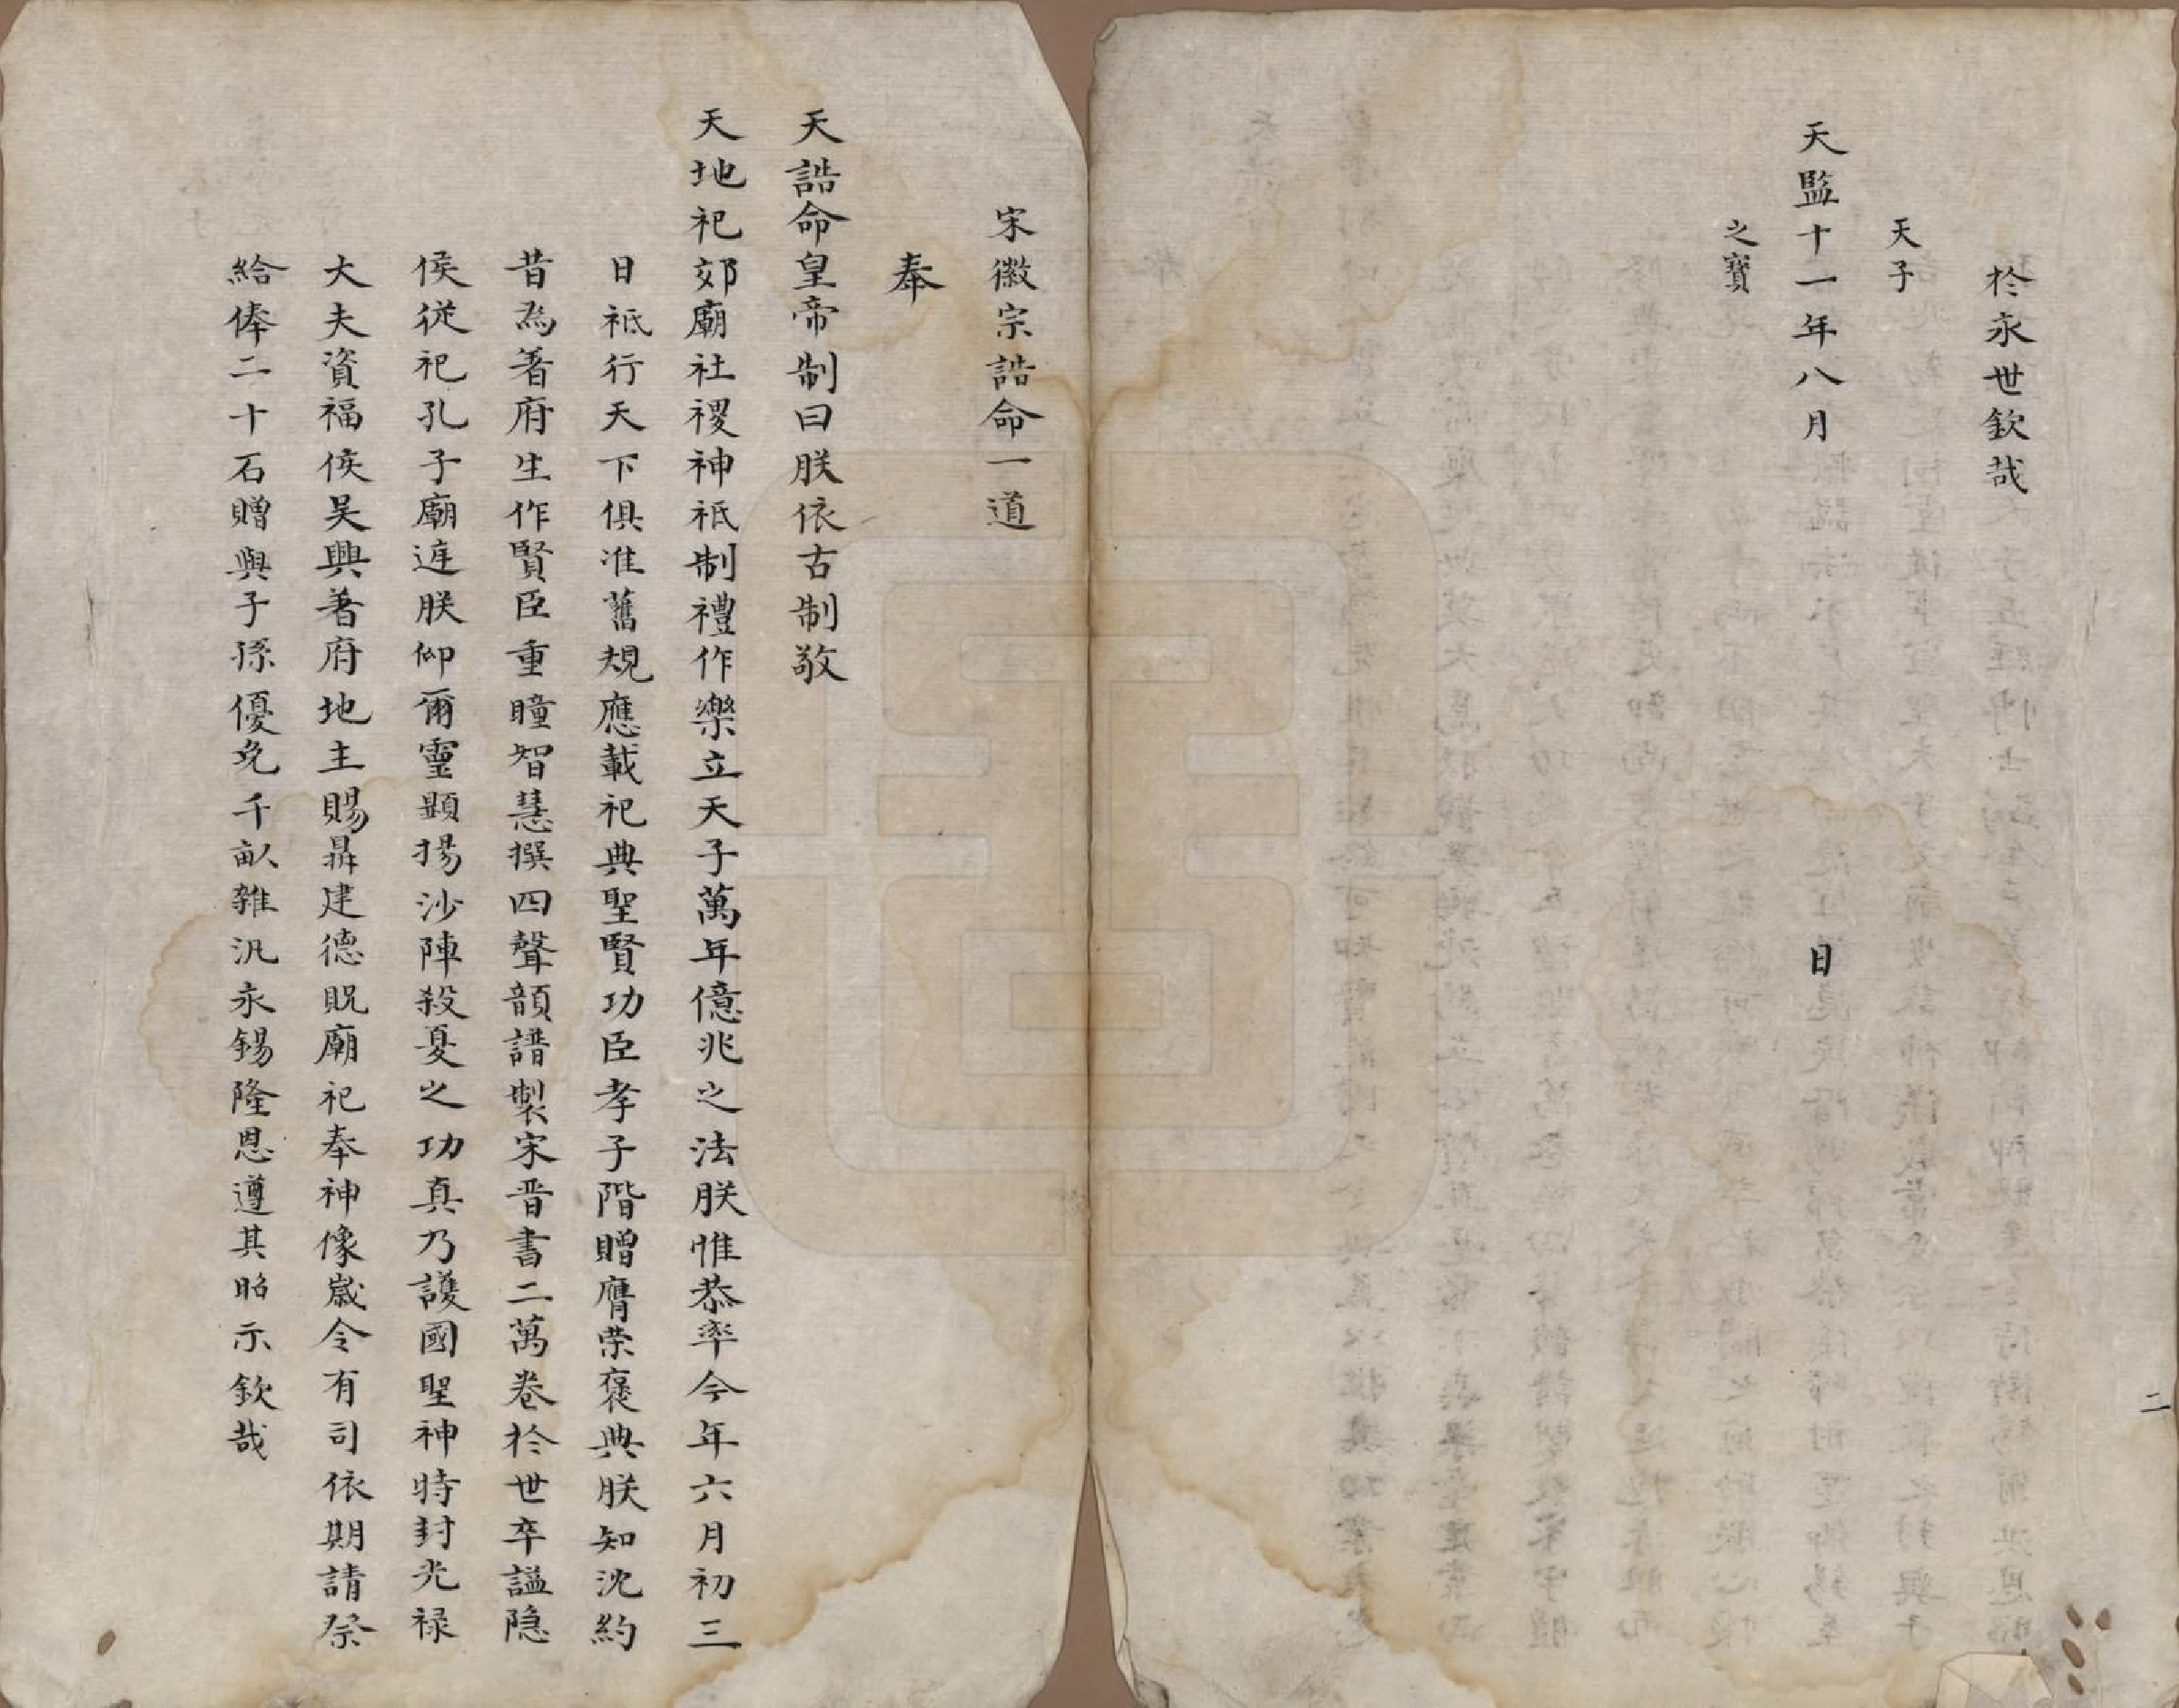 於永世欽哉
天子
天監十一年八月 日
之寶
二
宋徽宗誥命一道
奉
天誥命皇帝制曰朕依古制敬
天地祀郊廟社稷神祇制禮作樂立天子萬年億兆之法朕惟恭率今年六月初三
日祗行天下俱准舊規應載祀典聖賢功臣孝子階贈膺荣褒典朕知沈約
昔為著府生作賢臣重瞳智慧撰四聲韻譜製宋晋書二萬卷於世卒謚隐
侯從祀孔子廟庭朕仰爾靈顕揚沙陣殺憂之功真乃護國聖神時封光禄
大夫資福侯吴興著府地主賜勅建德貺廟祀奉神像嵗令有司依期請祭
給俸二十石贈與子孫優免千畝雜汎永錫隆恩遵其昭示欽哉